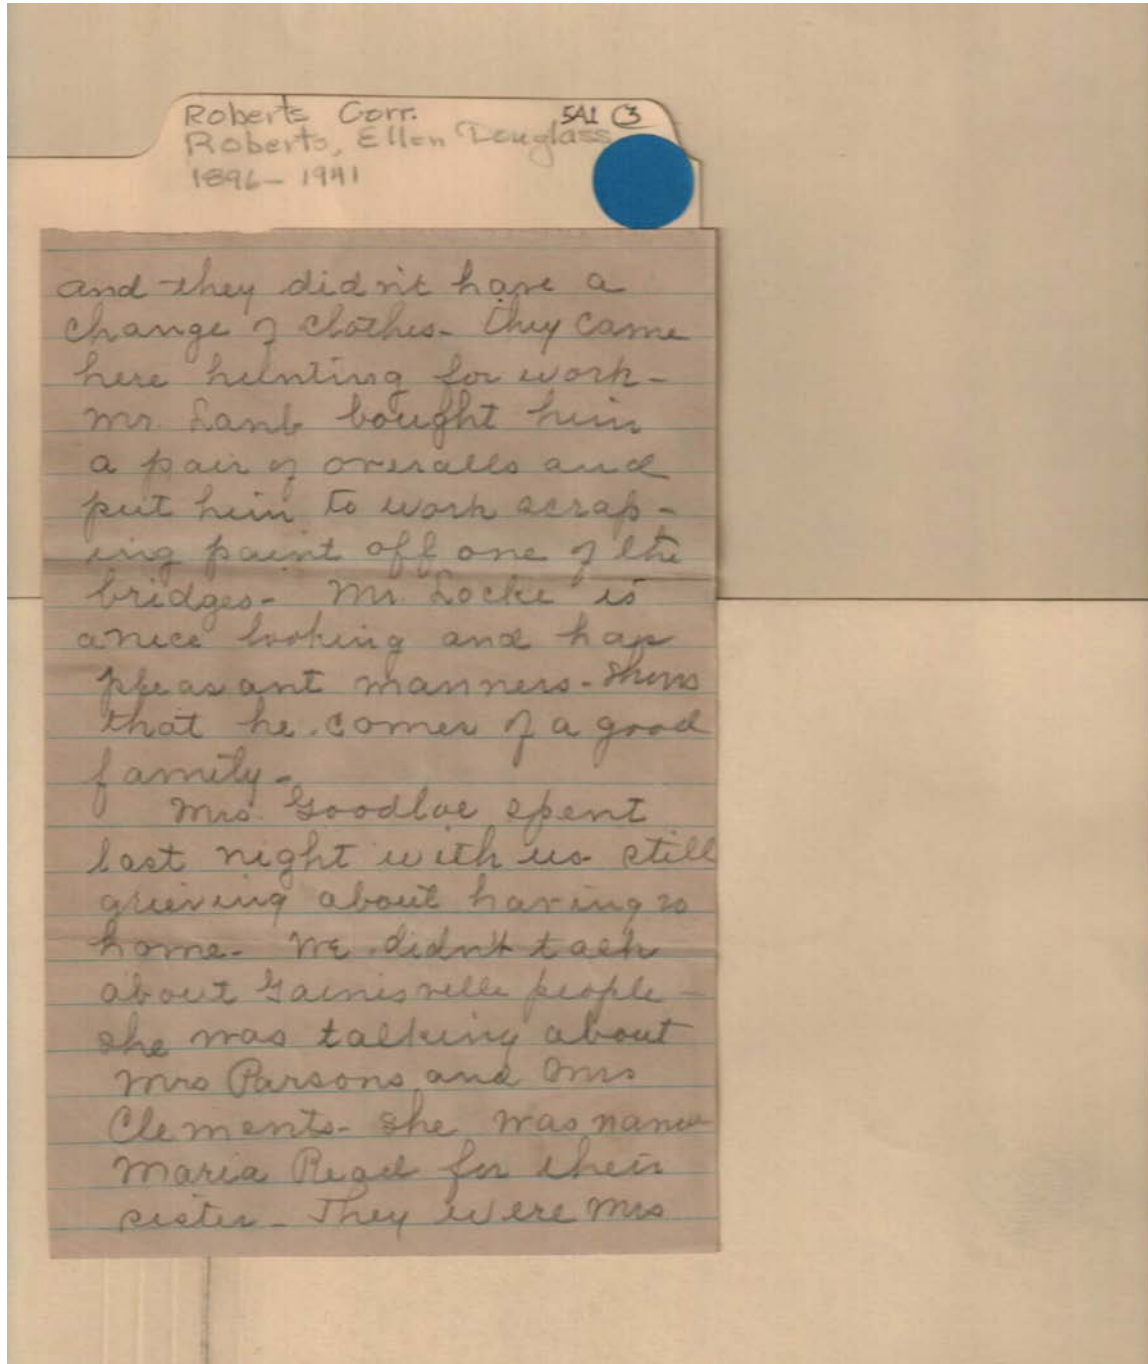 Roberts Corr. 5A1 (3)
Roberts, Ellen Douglass
1896-1941
and they didn't have a
change of clothes- they came
here hunting for work-
Mr. Lamb bought him
a pair of overalls and
put him to work scrap-
ing paint off one of the
bridges- Mr. Locke is
a nice looking and has
pleasant manners- Shows
that he comes of a good
family-
Mrs. Goodloe spent
last night with us still
grieving about having no
home- We didn't talk
about Gainesville people-
she was talking about
Mrs Parsons and Mrs
Clements- She was name
Maria Read for their
sister- They were Mrs